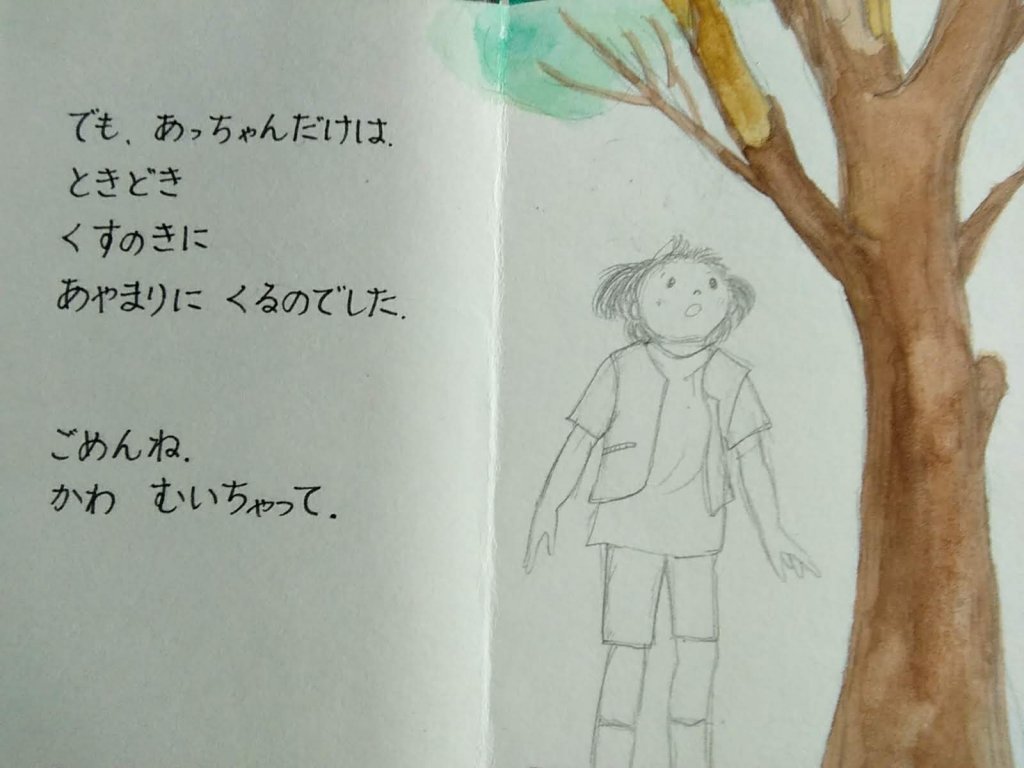 でも、あっちゃんだけは、
ときどき
くすのきに
あやまりに くるのでした.
ごめんね.
かわ むいちゃって.